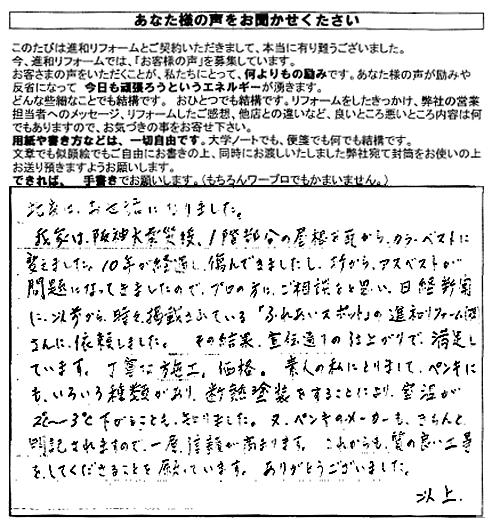 あなた様の声をお聞かせください
このたびは進和リフォームとご契約いただきまして、本当に有り難うございました。
今、進和リフォームでは、「お客様の声」を募集しています。
お客さまの声をいただくことが、私たちにとって、何よりもの励みです。あなた様の声が励みや
反省になって 今日も頑張ろうというエネルギーが湧きます。
どんな些細なことでも結構です。 おひとつでも結構です。リフォームをしたきっかけ、弊社の営業
担当者へのメッセージ、リフォームしたご感想、他店との違いなど、良いところ悪いところ内容は何
でもありますので、お気づきの事をお寄せ下さい。
用紙や書き方などは、一切自由です。大学ノートでも、便箋でも何でも結構です。
文章でも似顔絵でもご自由にお書きの上、同時にお渡しいたしました弊社宛て封筒をお使いの上
お送り頂きますようお願いします。
できれば、 手書きでお願いします。（もちろんワープロでもかまいません。）
お世話になりました。
我家は、阪神大震災後、1階部分の屋根を瓦から、カラーベストに
変えました。10年が経過し、傷んできましたし、アスベストが
問題になってきましたので、プロの方に、ご相談をと思い、日経新聞
に、以前から、時々掲載されている「ふれあいスポット」の進和リフォーム
さんに、依頼しました。 その結果、宣伝通りの仕上がりで、満足し
ています。丁寧な施工、価格。 素人の私にとりまして、ペンキに
も、いろいろ種類があり、断熱塗装をすることにより、室温が
2℃〜3℃下がることも、知りました。又、ペンキのメーカーも、きちんと
明記されますので、一層、信頼が高まります。 これからも、質の良い工事
を、してくださることを願っています。ありがとうございました。
以上